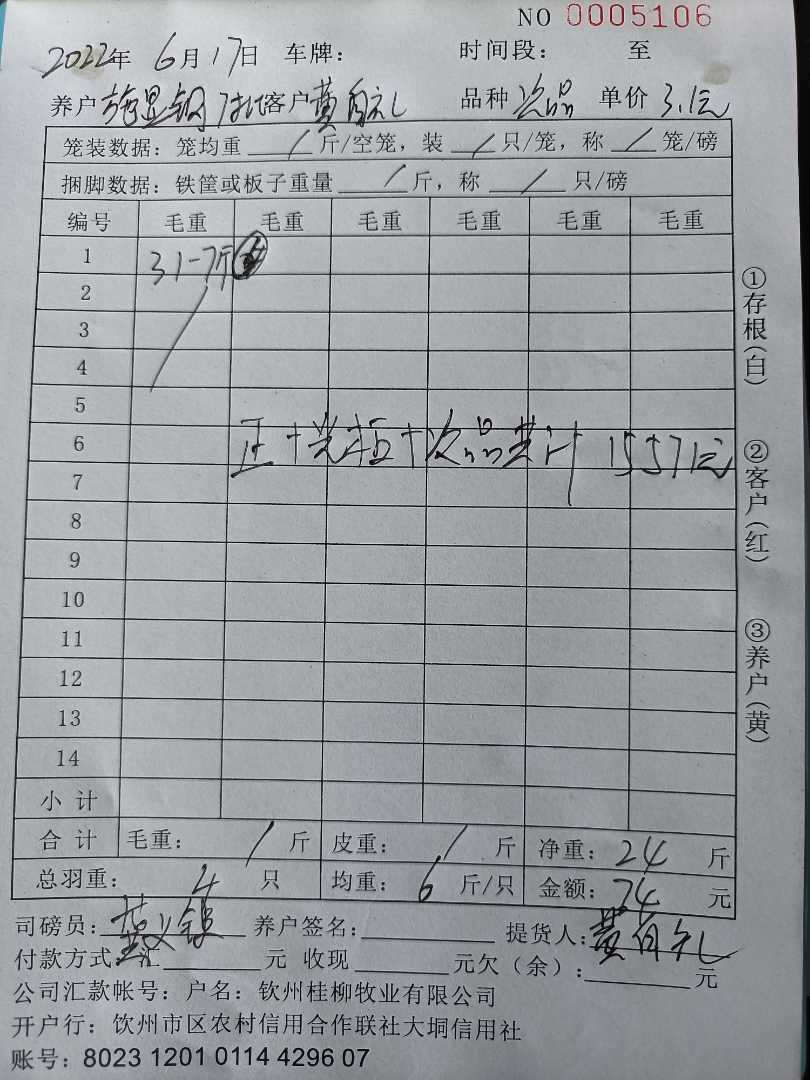 NO 0005106
2022年 6月17日 车牌: 时间段: 至
养户 客户 黄 礼 品种 次品 单价 3.1元
笼装数据: 笼均重 / 斤/空笼, 装 / 只/笼, 称 / 笼/磅
捆脚数据: 铁筐或板子重量 / 斤, 称 / 只/磅
编号 毛重 毛重 毛重 毛重 毛重 毛重
1 31-7斤
2
3
4
5
6 正+ +次品共计 1557元
7
8
9
10
11
12
13
14
小计
合计 毛重: / 斤 皮重: / 斤 净重: 24 斤
总羽重: 4 只 均重: 6 斤/只 金额: 74 元
司磅员: 养户签名: 提货人: 黄 礼
付款方式: 汇 元 收现 元欠(余): 元
公司汇款帐号: 户名: 钦州桂柳牧业有限公司
开户行: 饮州市区农村信用合作联社大垌信用社
账号: 8023 1201 0114 4296 07
①存根(白) ②客户(红) ③养户(黄)